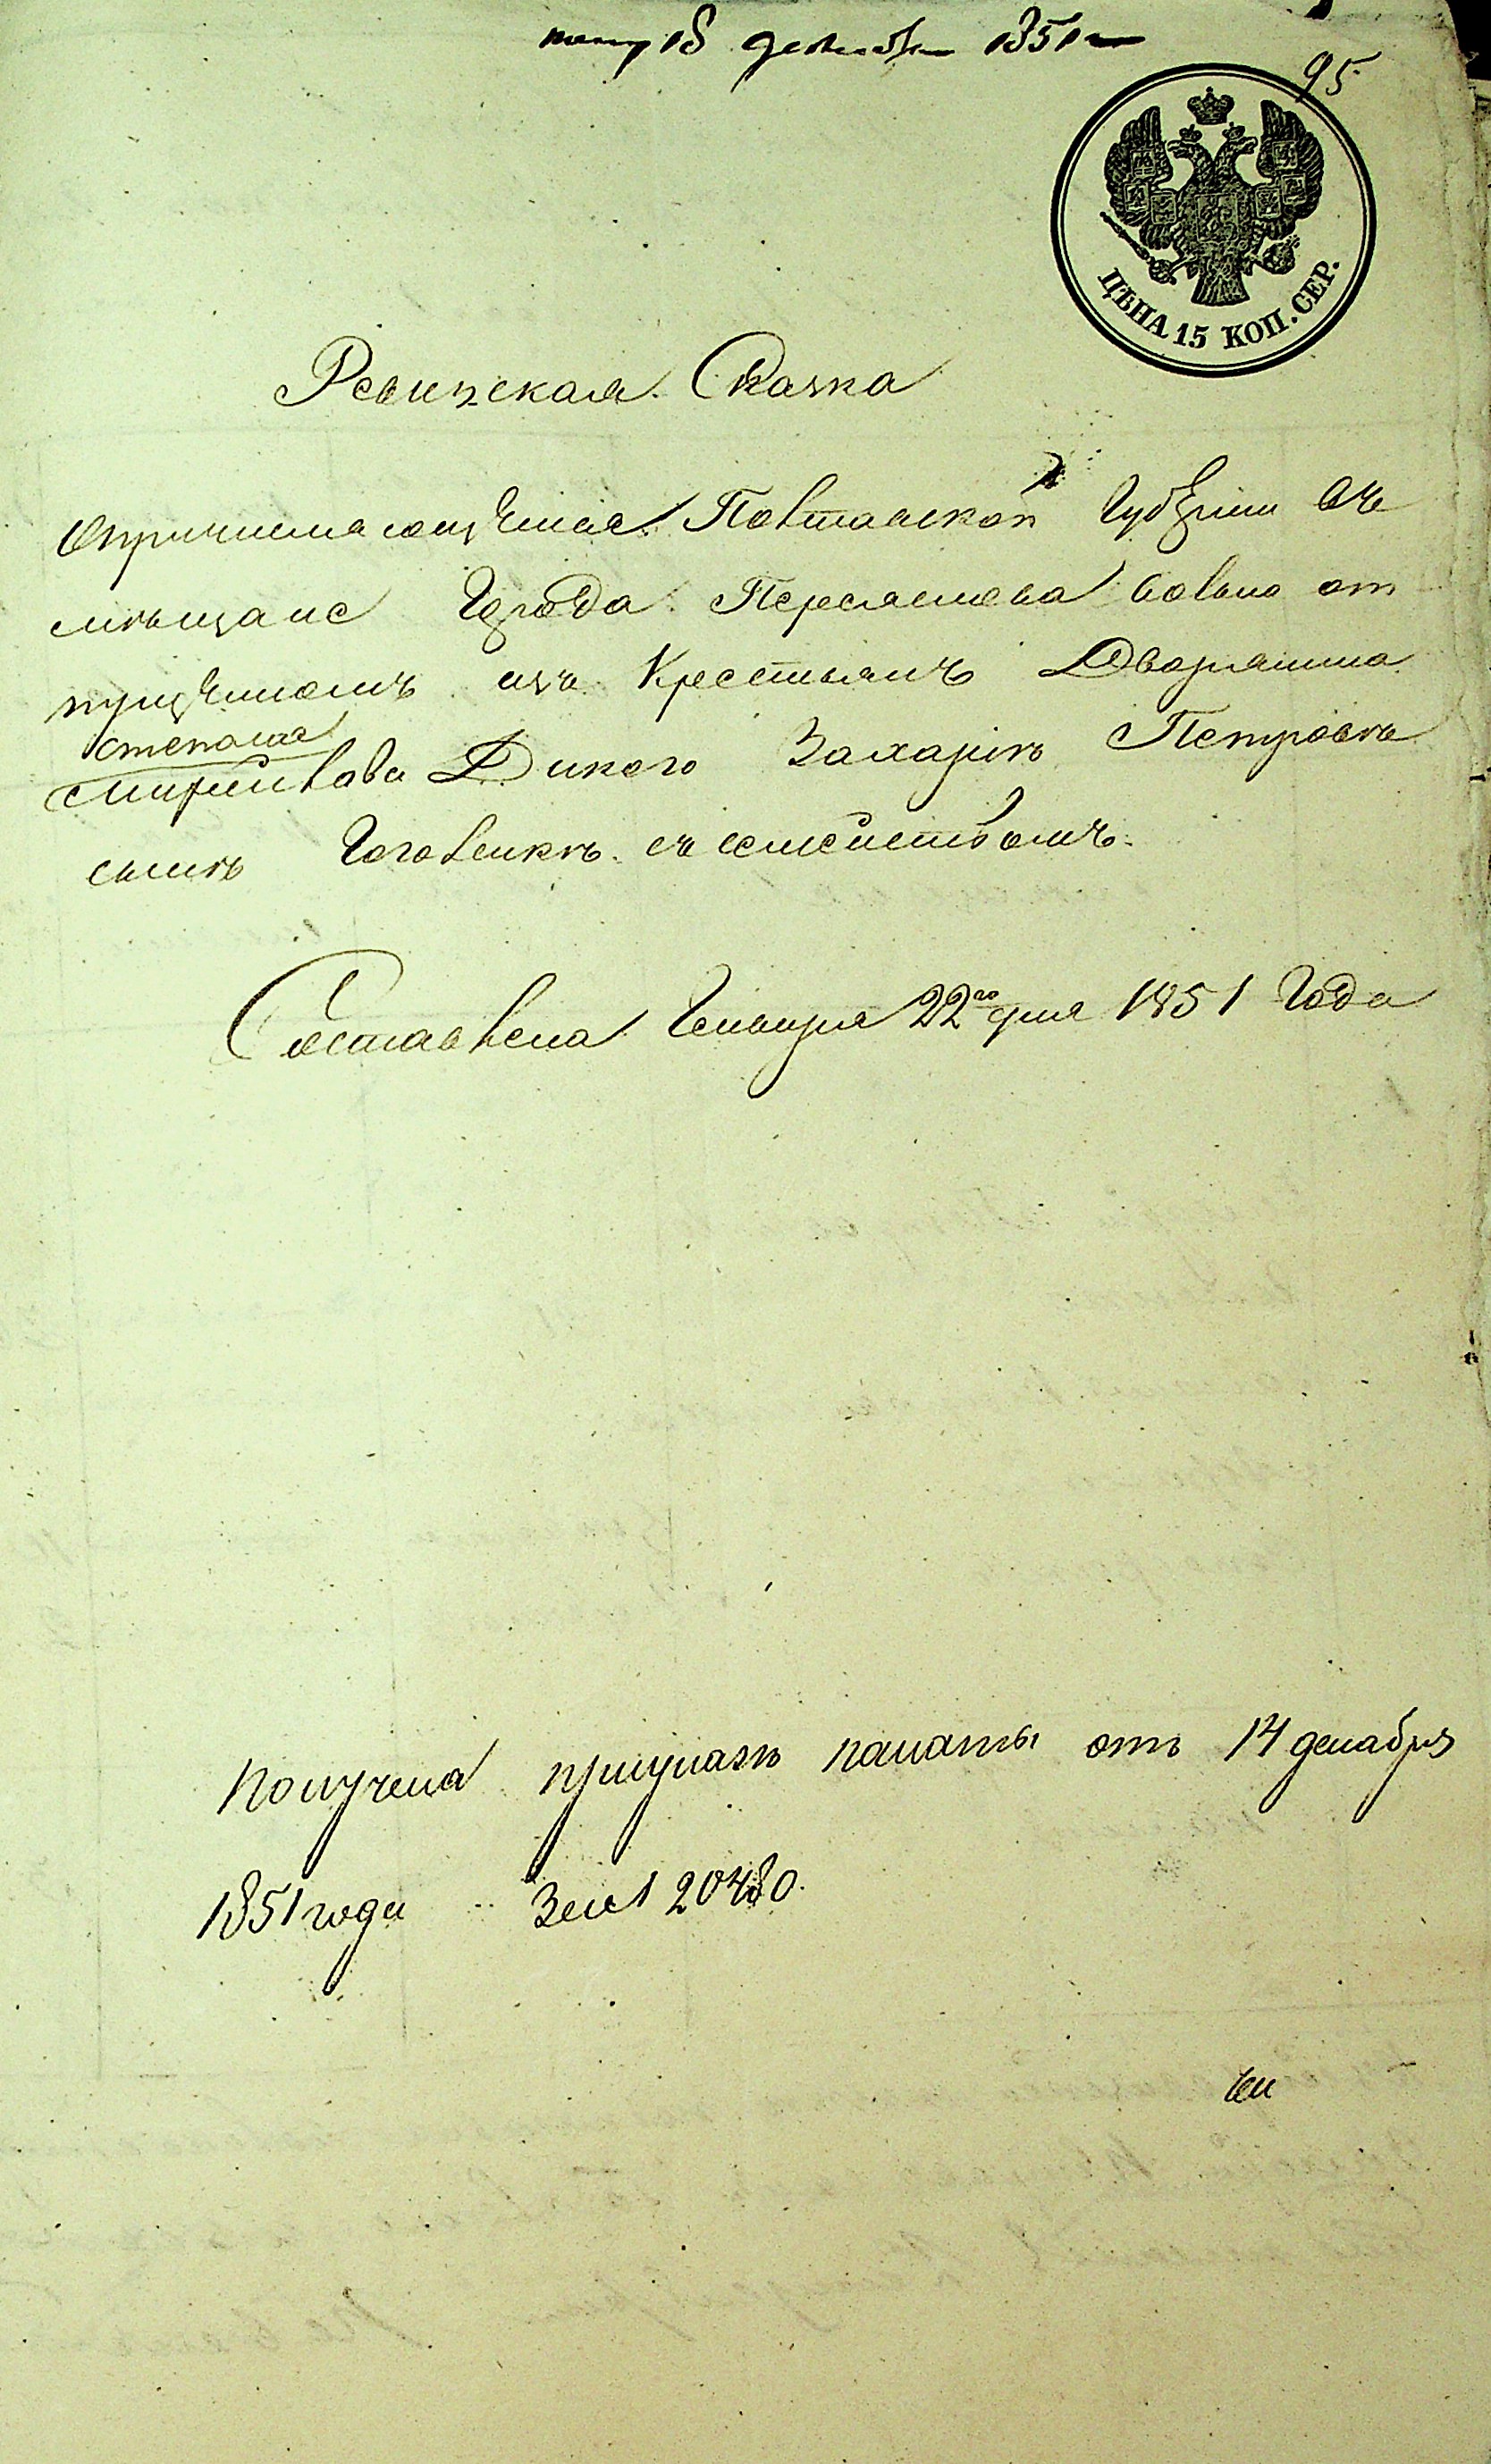 полу 18 декабря 1851 г
95
ЦѢНА 15 КОП. СЕР.
Ревизская Сказка
О причисляющемся Полтавской Губерніи въ
мѣщане Города Переяслова вольно от
пущенномъ изъ Крестьянъ Дворянина
Степана
Дикого Захаріѣ Петровѣ
сынѣ Гоголенкѣ съ семействомъ.
Составлена Генваря 22го дня 1851 Года
Получена при указѣ палаты отъ 14 декабря
1851 года За № 20480.